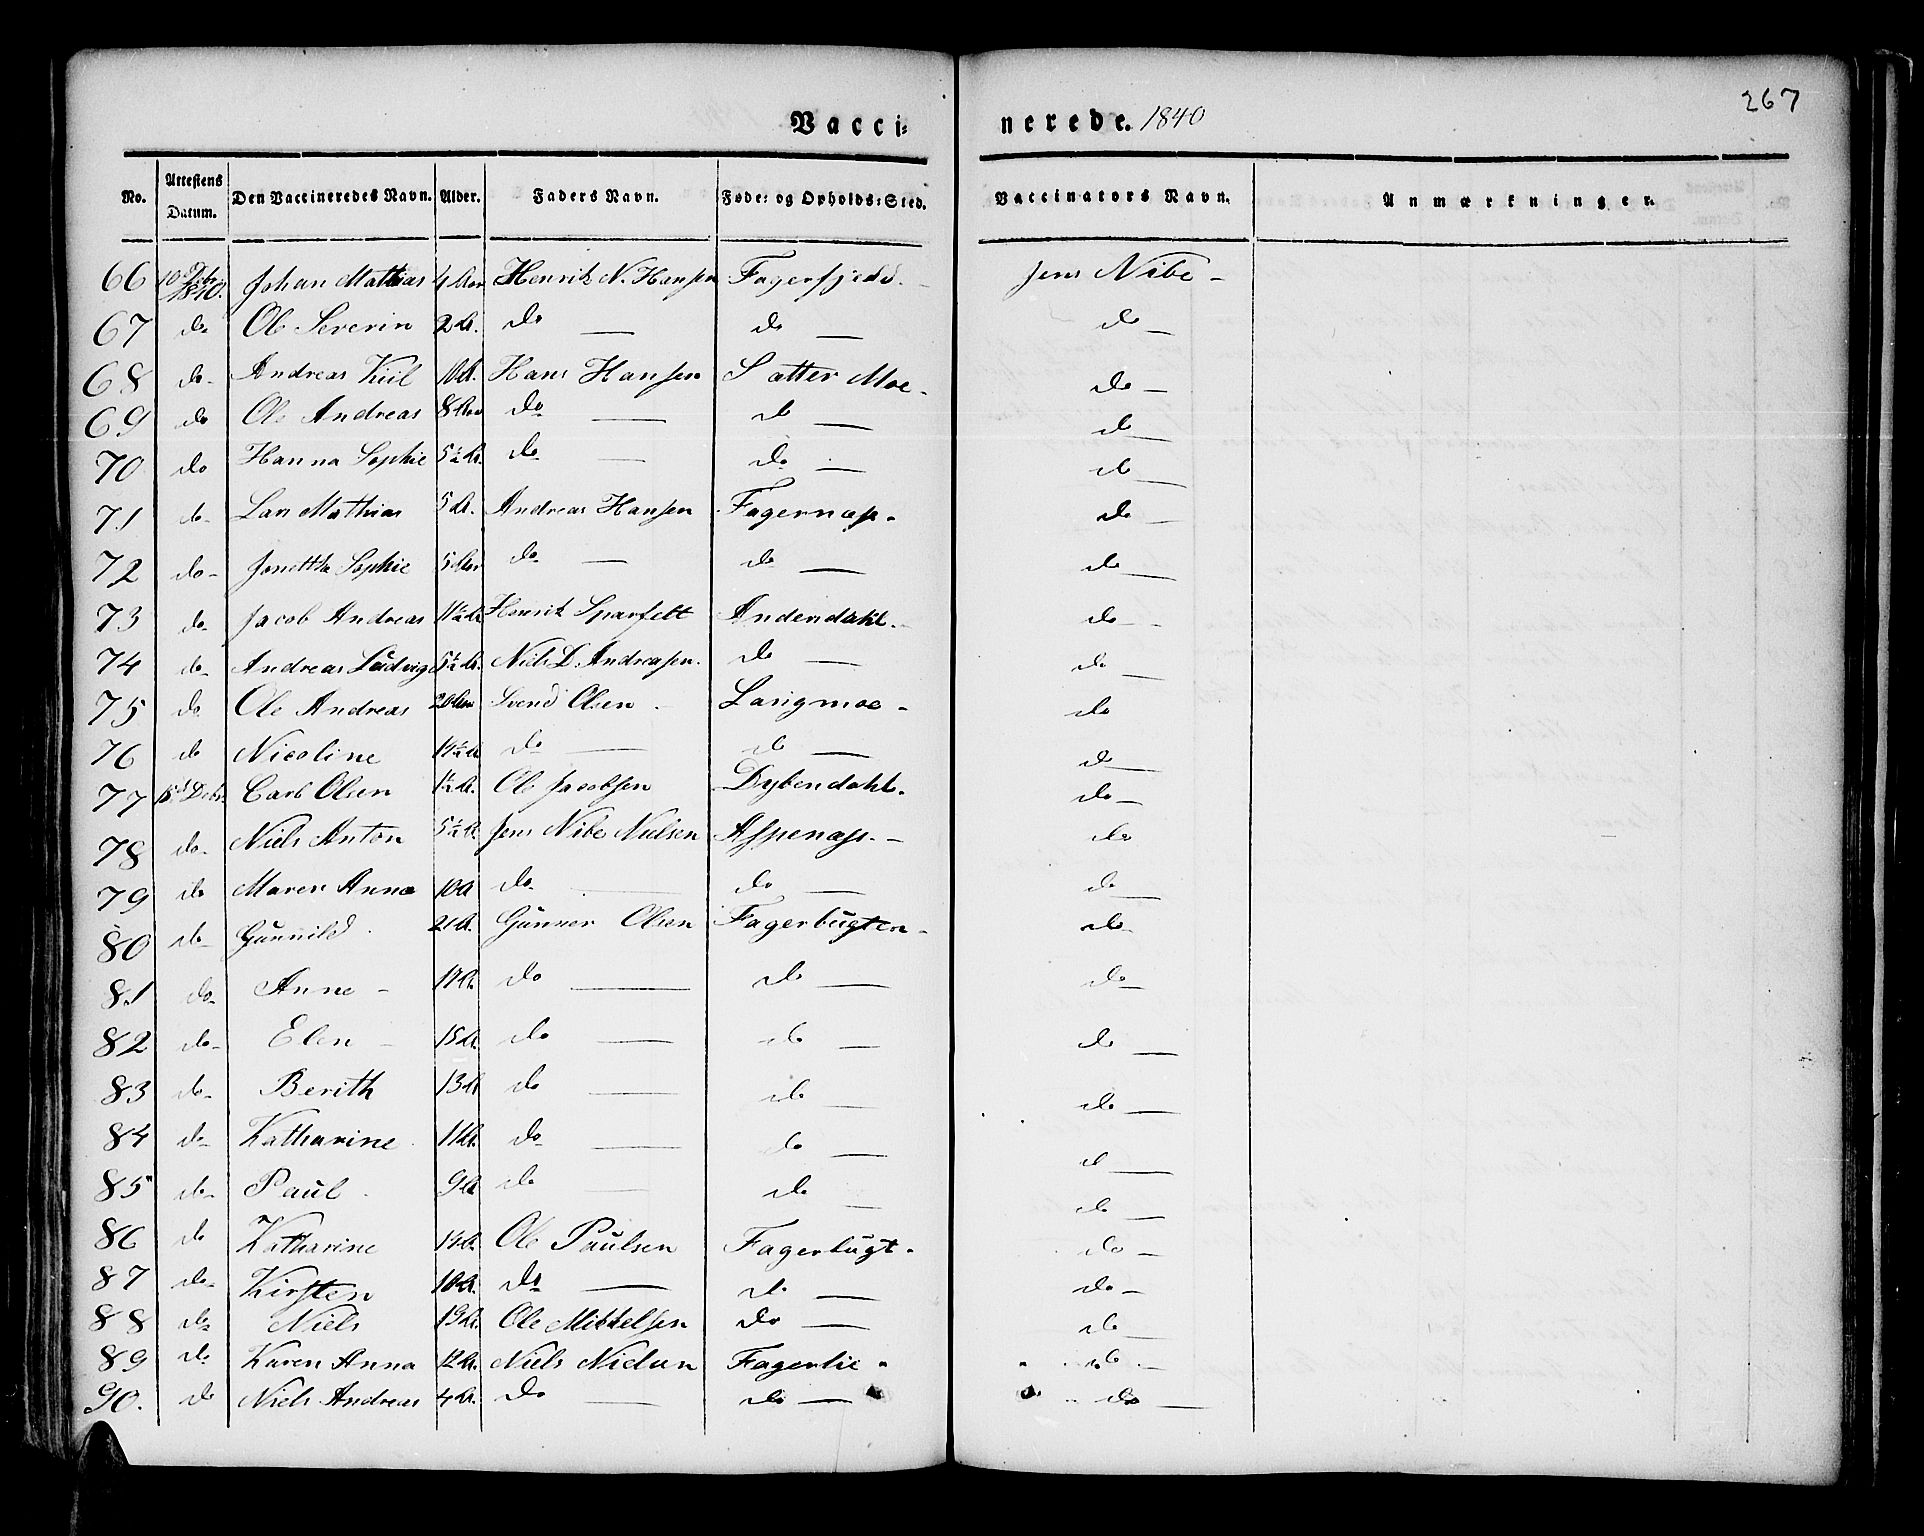 267
Vacci: nerede. 1840
No. Attestens Datum. Den Vaccineredes Navn. Alder. Faders Navn. Føde: og Opholds:Sted. Vaccinators Navn. Anmærkninger.
66 10 1840. Johan Mathias 4 Aar Henrik N. Hansen Fagerfjeld. Jens Nibe -
67 do Ole Severin 2 A. do — do — do —
68 do- Andreas Kiil 10 A. Hans Hansen Satter Moe - do —
69 do Ole Andreas 8 Aar do — do — do —
70 do Hanna Sophie 5½ A. do — do — do —
71 do- Lars Mathias 5 A. Andreas Hansen Fagernæs - do —
72 do- Jonetta Sophie 5 Aar do — do — do —
73 do- Jacob Andreas 11½ A Henrik Sparfelt Andendahl. do -
74 do- Andreas Ludvig 5½ A. Niels D. Andreasen. do — do —
75 do Ole Andreas 20 Aar Svend Olsen - Langmoe - do
76 do Nicoline 14½ A do — do — do —
77 Debr. Carl Olsen 1½ A. Ole Jacobsen Dybendahl. do —
78 do- Niels Anton 5½ A. Jens Nibe Nielsen Aspenæs. - do
79 do Maren Anna 10 A do — do — do —
80 do- Gunnild 21 A. Gunner Olsen Fagerbugten - do-
81 do- Anne - 17 A. do — do — do —
82 do- Elen - 15 A. do — do — do —
83 do- Berith 13 A do — do — do —
84 do- Katharine 11 A. do — do — do —
85 do- Paul 9 A do — do — do —
86 do Katharine 14 A. Ole Paulsen Fagerbugt. do —
87 do- Kirsten 10 A. do — do — do —
88 do- Niels 19 A. Ole Mikkelsen do — do —
89 do Karen Anna 12 A. Niels Fagerlie - do —
90. do Niels Andreas 4 A. do — do — do —